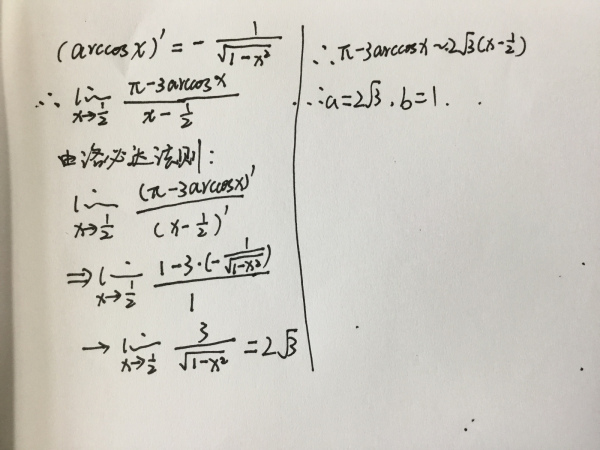 (arccosx)' = - 1/√(1-x²)
∴ lim x→1/2 (π-3arccosx)/(x-1/2)
由洛必达法则:
lim x→1/2 (π-3arccosx)'/(x-1/2)'
⇒ lim x→1/2 (1-3·(-1/√(1-x²)))/1
→ lim x→1/2 3/√(1-x²) = 2√3
∴ π-3arccosx ~ 2√3(x-1/2)
∴ a=2√3, b=1.